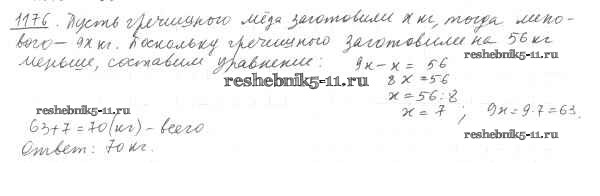 1176. Пусть гречишного мёда заготовили x кг, тогда липо-
вого — 9x кг. Поскольку гречишного заготовили на 56 кг
меньше, составим уравнение: 9x-x = 56
reshebnik5-11.ru
8x = 56
reshebnik5-11.ru
x = 56 : 8
reshebnik5-11.ru
x = 7 ; 9x = 9·7 = 63.
63+7=70 (кг) - всего
reshebnik5-11.ru
Ответ: 70 кг.
reshebnik5-11.ru